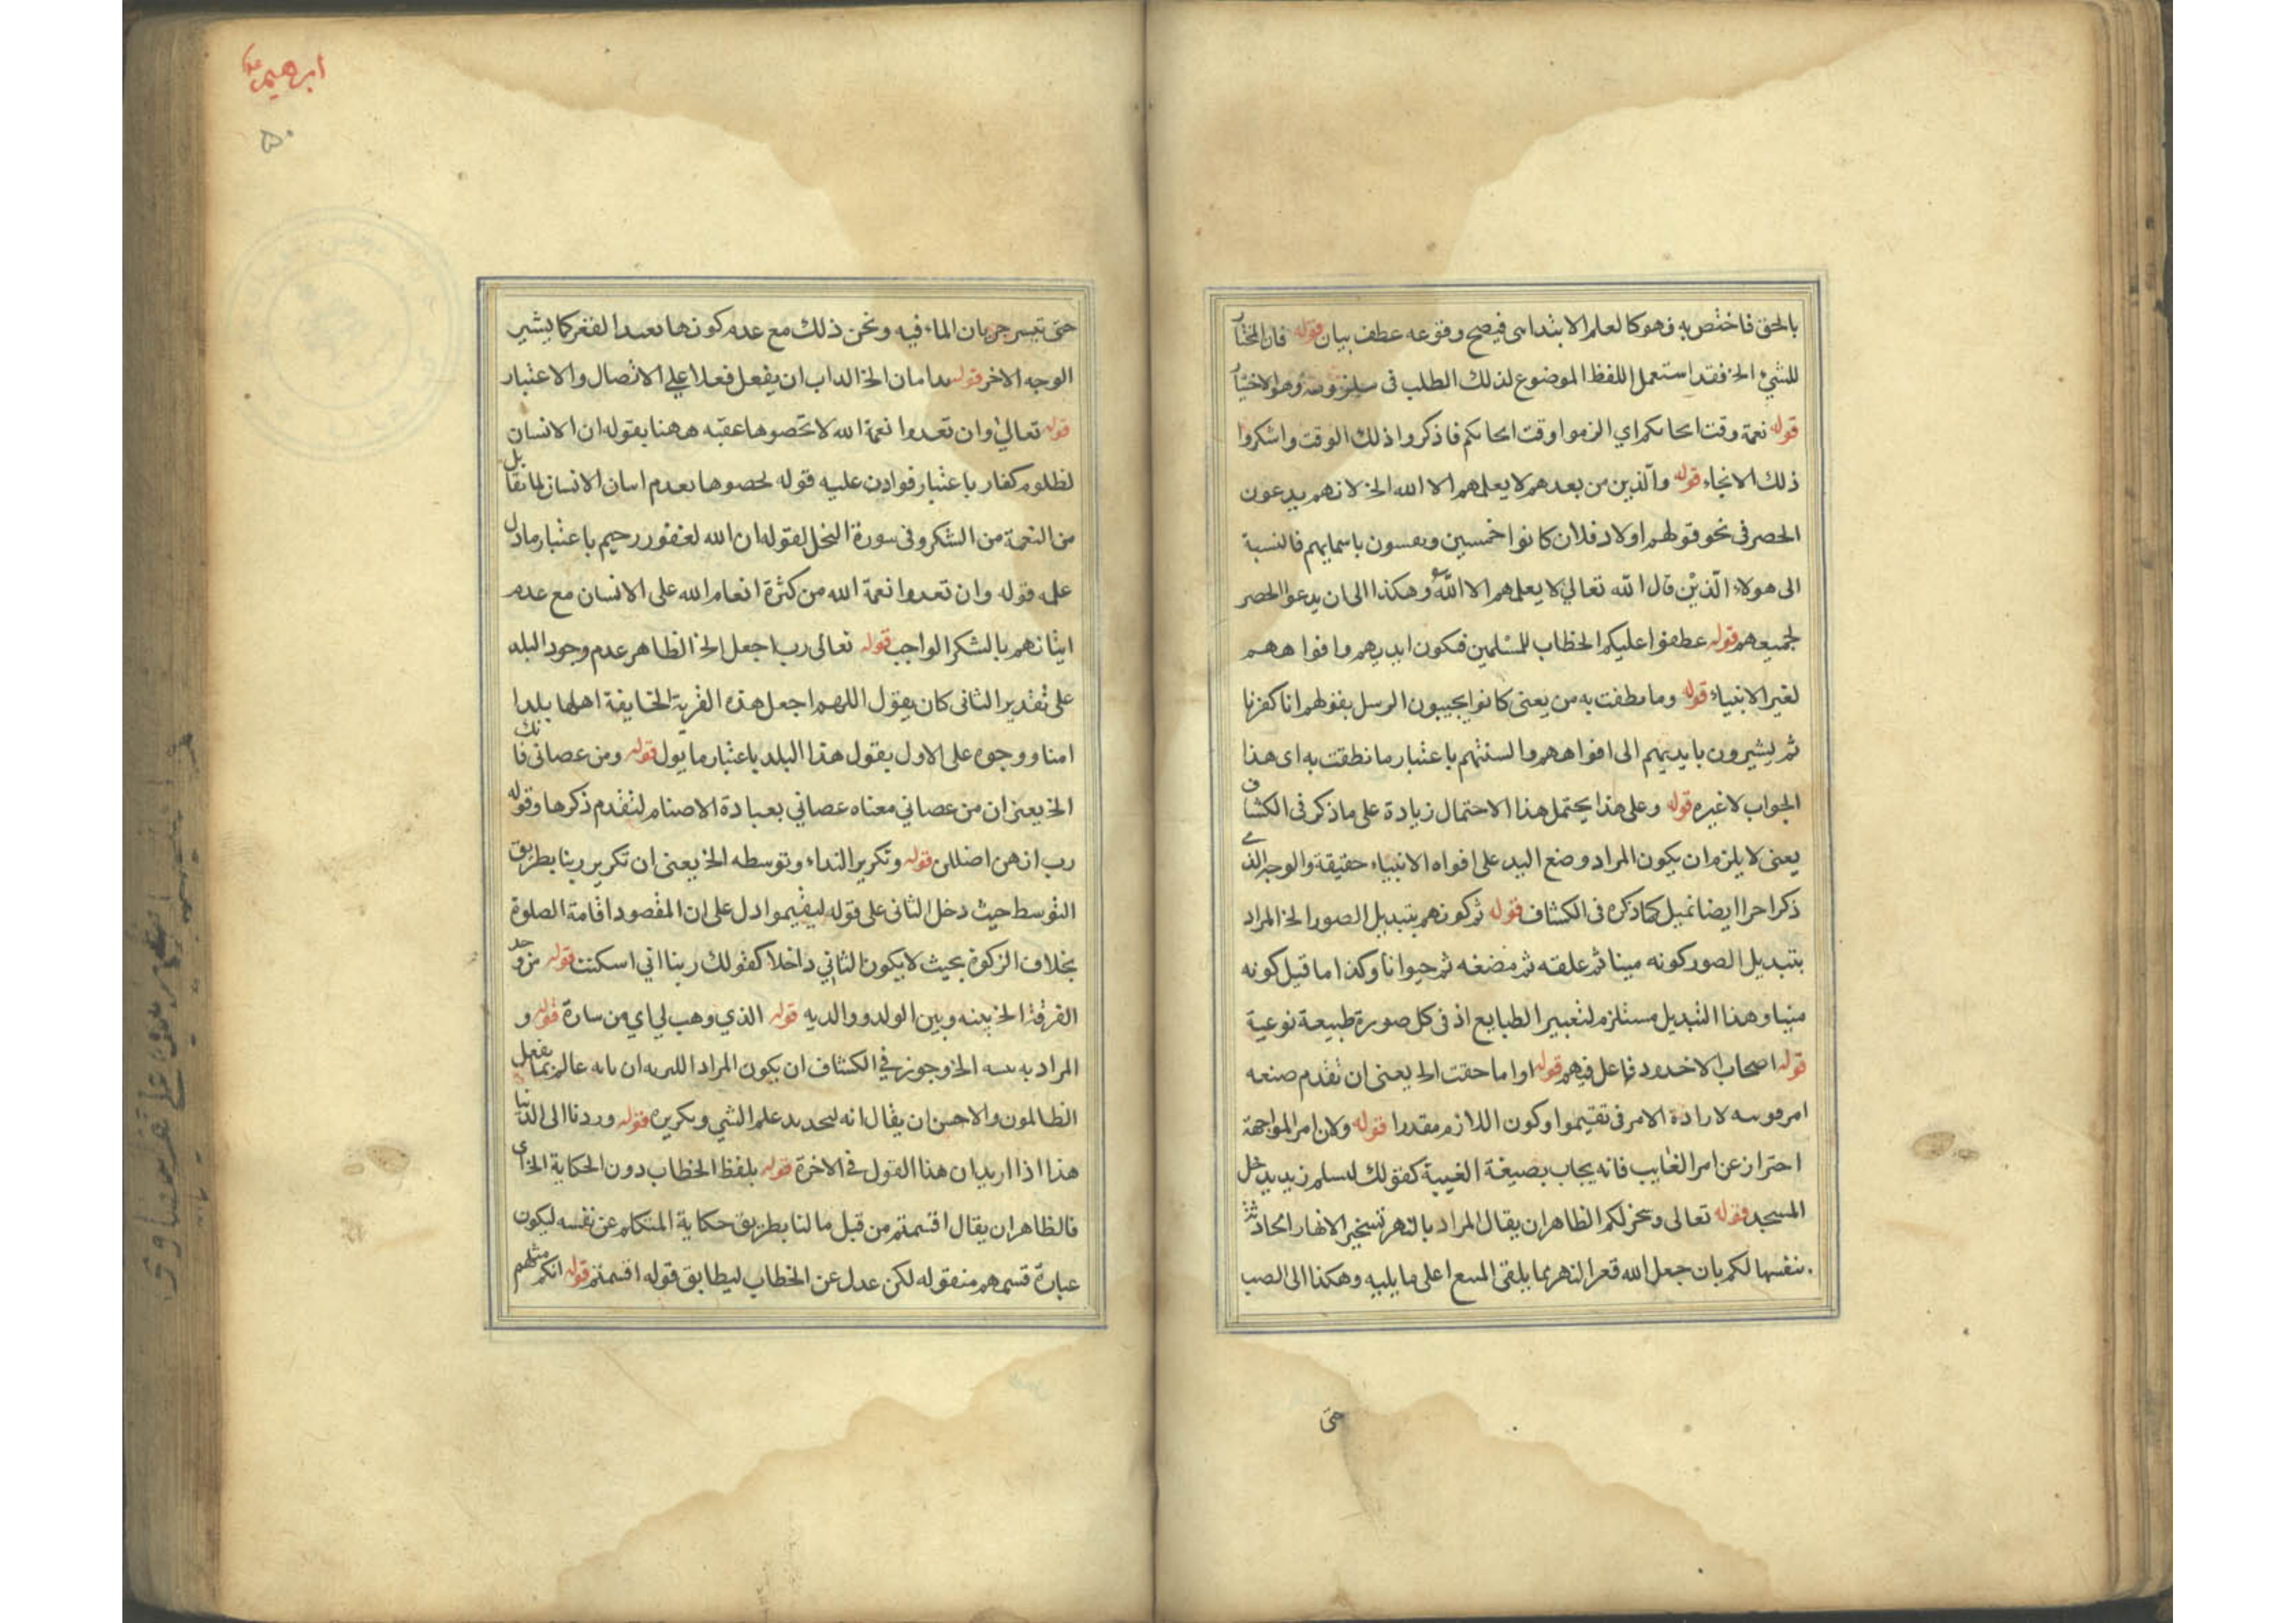 بالحق فاختص به فهو كالعلم الابتدا سى فيصح وقوعه عطف بيان قوله فان المختار
للشيء الخ فقد استعمل اللفظ الموضوع لذلك الطلب فى وهو الاختيار
قوله نعمة وقت انجاءكم اي الزموا وقت انجاءكم فاذكروا ذلك الوقت واشكروا
ذلك الانجاء قوله والذين من بعدهم لا يعلمهم الا الله الخ لانهم يدعون
الحصر فى نحو قولهم اولاد فلان كانوا خمسين ويعسون باسمايهم فالنسبة
الى هولاء الذين قال الله تعالي لا يعلمهم الا الله وهكذا الى ان يدعوا الحصر
لجميعهم قوله عطفوا عليكم الخطاب للمسلمين فيكون ايديهم وافواههم
لغير الانبياء قوله وما نطقت به من يعنى كانوا يجيبون الرسل بقولهم انا كفرنا
ثم يشيرون بايديهم الى افواههم والسنتهم باعتبار ما نطقت به اى هذا
الجواب لا غيره قوله وعلى هذا يحتمل هذا الاحتمال زيادة على ما ذكر فى الكشاف
يعنى لا يلزم ان يكون المراد وضع اليد على افواه الانبياء حقيقة والوجه الذى
ذكر احرا ايضا تميل كما ذكره فى الكشاف قوله ثم كونهم بتبديل الصور الخ المراد
بتبديل الصور كونه مينا ثم علقه ثم مضغه ثم حيوانا وكذا ما قبل كونه
منيا وهذا التبديل مستلزم لتغيير الطبايع اذ فى كل صورة طبيعة نوعية
قوله اصحاب الاخدود فاعل فيهم قوله او اما حقت الخ يعنى ان تقدم صنعه
امر لارادة الامر فى تقيموا وكون اللازم مقدرا قوله ولان امر المواجهة
احتراز عن امر الغايب فانه يجاب بصيغة الغيبة كقولك ليسلم زيد يدخل
المسجد قوله تعالى وسخر لكم الظاهر ان يقال المراد بالنهر تسخير الانهار اتحاد
بنفسها لكم بان جعل الله قعر النهر بما يلقى المنبع اعلى ما يليه وهكذا الى الصب
حتى
ابرهيم
٥٠
حتى تيسر جريان الماء فيه ونحن ذلك مع عدم كونها بعيدا لقعر كما يشير
الوجه الاخر قوله الخ الداب ان يفعل فعلا على الاتصال والاعتبار
قوله تعالى وان تعدوا نعمة الله لا تحصوها عقبه ههنا بقوله ان الانسان
لظلوم كفار باعتبار فوادن عليه قوله لا تحصوها بعدم اسان الانسان لما يقابل
من النعمة من الشكر وفى سورة النحل لقوله ان الله لغفور رحيم باعتبار ما دل
عله قوله وان تعدوا نعمة الله من كثرة انعام الله على الانسان مع عدم
ايتانهم بالشكر الواجب قوله تعالى رب اجعل الخ الظاهر عدم وجود البلد
على تقدير الثانى كان يقول اللهم اجعل هذه القرية الخايفة اهلها بلدا
امنا ووجوه على الاول يقول هذا البلد باعتبار ما يول قوله ومن عصانى فانك
الخ يعنى ان من عصاني معناه عصاني بعبادة الاصنام لتقدم ذكرها وقوله
رب انهن اضللن قوله وتكرير النداء وتوسطه الخ يعنى ان تكرير ربنا بطريق
التوسط حيث دخل الثانى على قوله ليقيموا دل على ان المقصود اقامة الصلوة
بخلاف الزكوة بحيث لا يكون الثاني داخلا كقولك ربنا انى اسكنت قوله من وجد
الفرقة الخ بينه وبين الولد ووالديه قوله الذي وهب لي اي من سارة قوله و
المراد به الخ وجوز في الكشاف ان يكون المراد ان بانه عالم بما يفعل
الظالمون والاحسن ان يقال انه لتجديد علم الشي وتكريره قوله وردنا الى الدنيا
هذا اذا اريد ان هذا القول في الاخرة قوله بلفظ الخطاب دون الحكاية الخ اى
فالظاهر ان يقال اقسمتم من قبل مالنا بطريق حكاية المتكلم عن نفسه ليكون
عبارة قسمهم منقوله لكن عدل عن الخطاب ليطابق قوله اقسمتم قوله انكم مثلهم